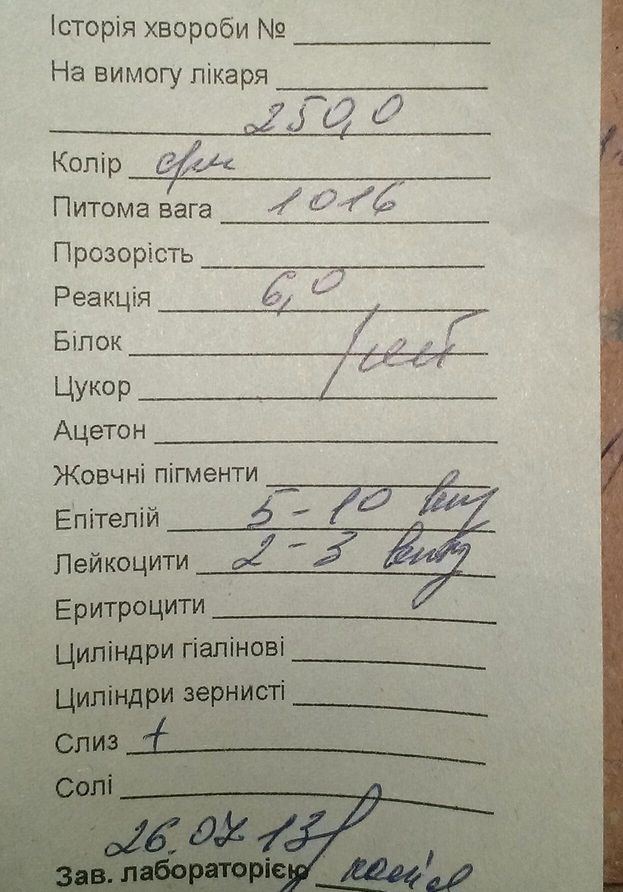 Історія хвороби №
На вимогу лікаря
250,0
Колір
Питома вага 1016
Прозорість
Реакція 6,0
Білок
Цукор
Ацетон
Жовчні пігменти
Епітелій 5-10
Лейкоцити 2-3
Еритроцити
Циліндри гіалінові
Циліндри зернисті
Слиз +
Солі
26.07 13
Зав. лабораторією